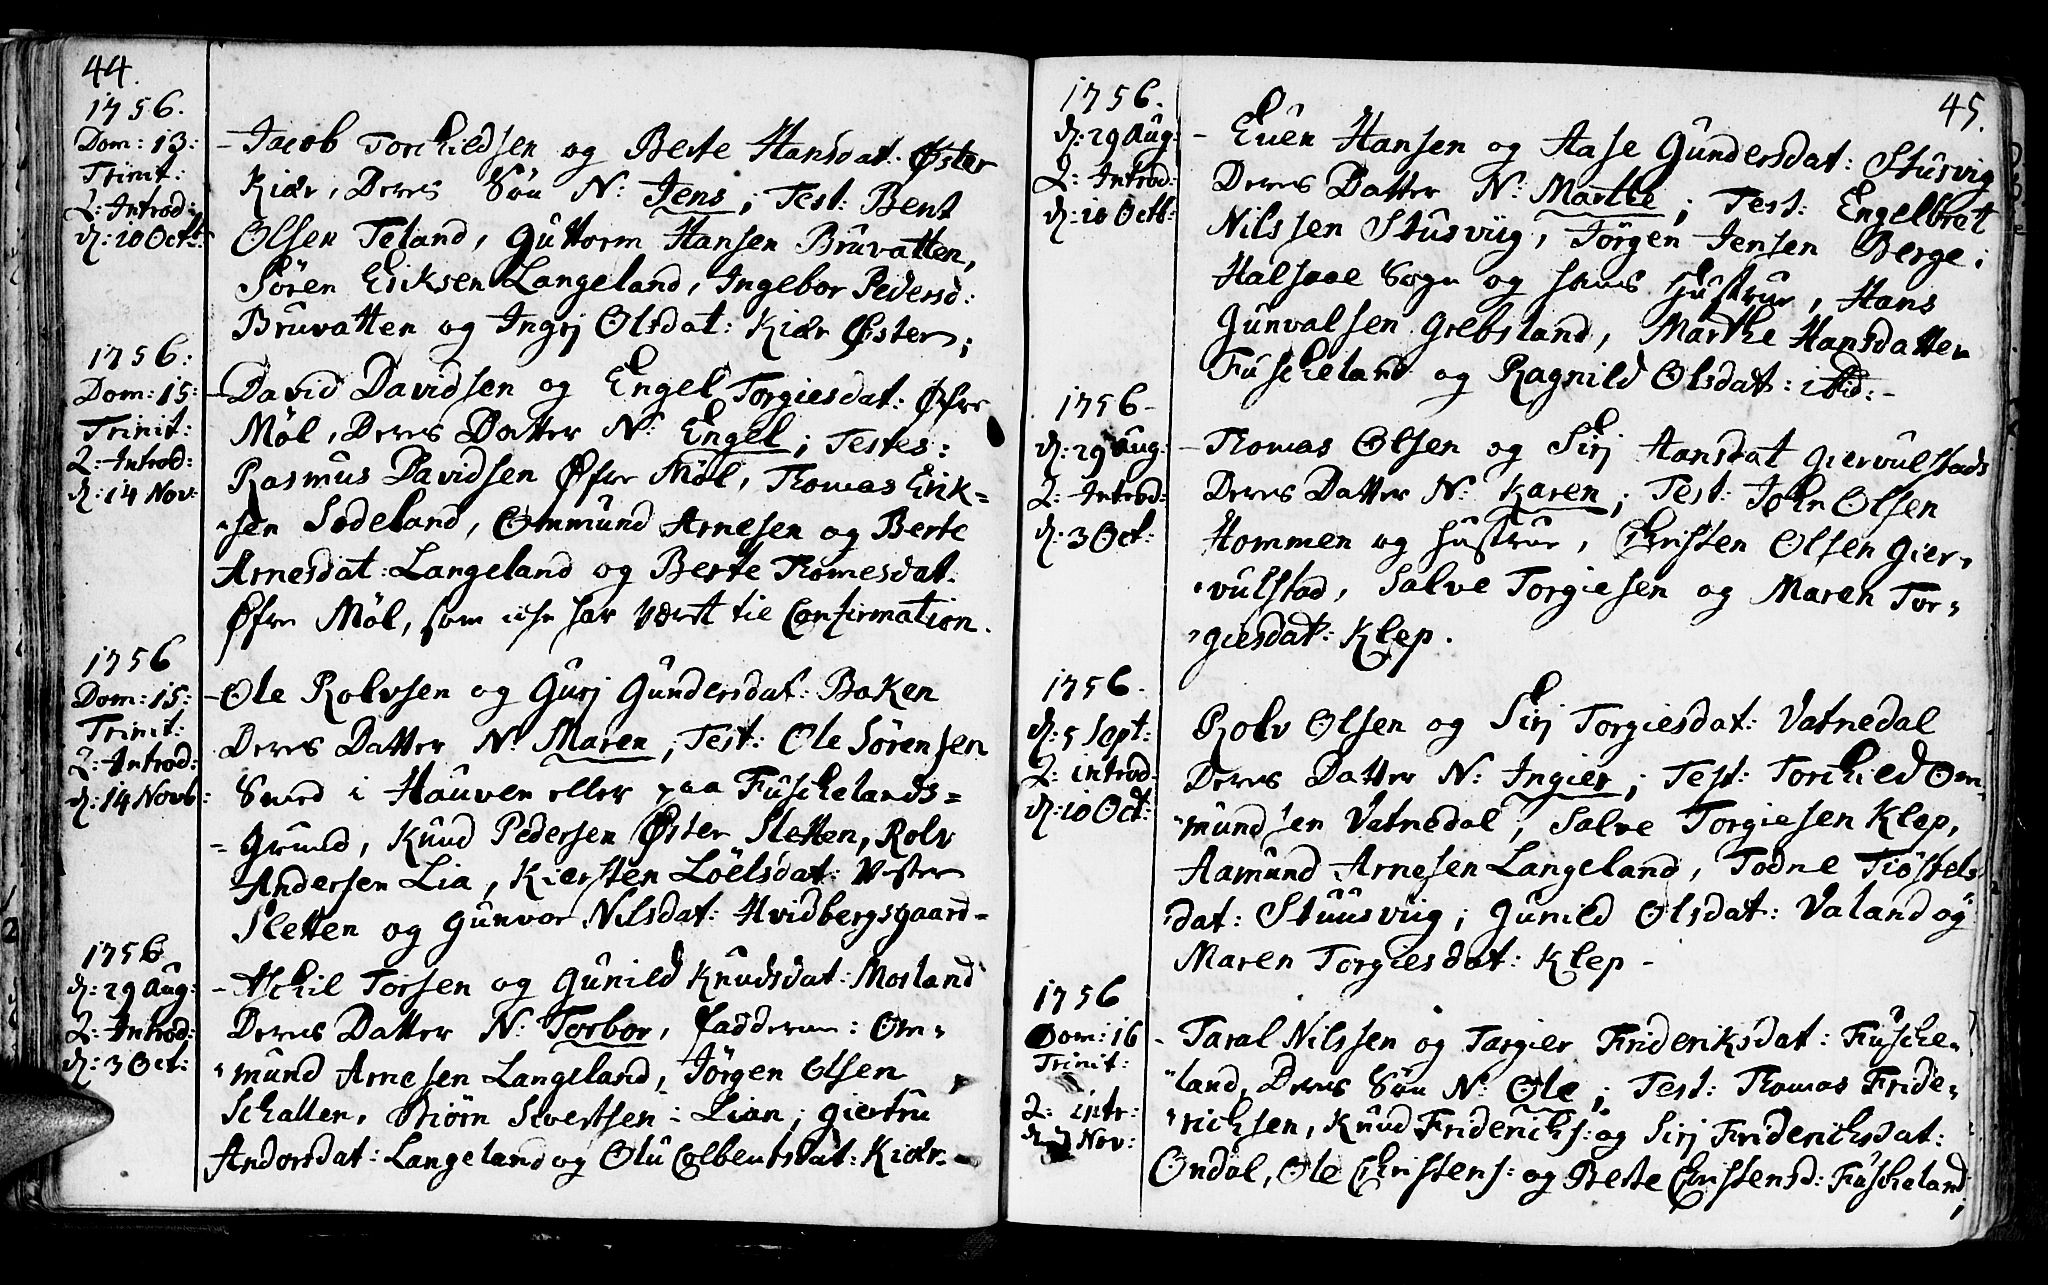 44.
1756.
Dom: 13:
Trinit:
Q: Introd:
d: 10 Octb:
- Jacob Torchildsen og Berte Hansdat: Øster
Kiær, Deres Sön N: Jens; Test: Bent
Olsen Teland, Guttorm Hansen Bruvatten,
Sören Eriksen Langeland, Ingebor Pedersd:
Bruvatten og Ingrj Olsdat: Kiær Øster;
1756:
Dom: 15:
Trinit:
Q: Introd:
d: 14 Nov:
- David Davidsen og Engel Torgiesdat: Øfre
Möl, Deres Datter N: Engel; Testes:
Rasmus Davidsen Øfre Möl, Thomas Erik=
"sen Sodeland, Ommund Arnesen og Berte
Arnesdat: Langeland og Berte Thomesdat.
Øfre Möl, som icke har vært til Confirmation.
1756
Dom: 15:
Trinit:
Q: Introd:
d: 14 Novb:
- Ole Rolvsen og Gurj Gundersdat: Baken
Deres Datter N: Maren; Test: Ole Sörensen
Smed i Hauven eller paa Fuschelands=
= Grund, Knud Pedersen Øster Sletten, Rolv
Andersen Lia, Kiersten Loëlsdat: Vester
Sletten og Gunvor Nilsdat: Hvidbergsgaard=
1756
d: 29 Aug:
Q: Introd:
d: 3 Oct:
- Aschil Torsen og Gunild Knudsdat: Mosland
Deres Datter N: Torbor, Fadderne: Om=
"mund Arnesen Langeland, Jörgen Olsen
Schallen, Biörn Sivertsen: Lian; Giertru
Andorsdat: Langeland og Olu Colbentsdat: Kiær.
45.
1756.
d: 29 Aug:
Q: Introd:
d: 10 Octb:
- Even Hansen og Aase Gundersdat: Stusvig
Deres Datter N: Marthe; Test: Engelbret
Nilssen Stusviig, Jörgen Jensen Berge i
Halsaae Sogn og hans Hustrue, Hans
Gunvalsen Grebsland, Marthe Hansdatter
Fuscheland og Ragnild Olsdat: ibid: -
1756-
d: 29 Aug:
Q: Introd:
d: 3 Oct:
- Thomas Olsen og Sirj Hansdat Giervulstads
Deres Datter N: Karen; Test: John Olsen
Hommen og Hustrue, Christen Olsen Gier=
"vulstad, Salve Torgiesen og Maren Tor=
"giesdat: Klep.
1756.
d: 5 Sept:
Q: introd:
d: 10 Oct:
Rolv Olsen og Sirj Torgiesdat: Vatnedal
Deres Datter N: Ingier; Test: Torchild Om=
"mundsen Vatnedal, Salve Torgiesen Klep,
Aamund Arnesen Langeland, Todne Tiöstels=
"dat: Stuusviig; Gunild Olsdat: Valand og
Maren Torgiesdat: Klep -
1756
Dom: 16
Trinit:
Q: intr:
d: 7 Nov:
- Taral Nilssen og Targier Frideriksdat: Fusche=
"land, Deres Sön N: Ole; Test: Thomas Fride=
"richsen, Knud Friderichs: og Sirj Friderichsdat:
Ondal, Ole Christens: og Berte Christensd: Fuscheland;